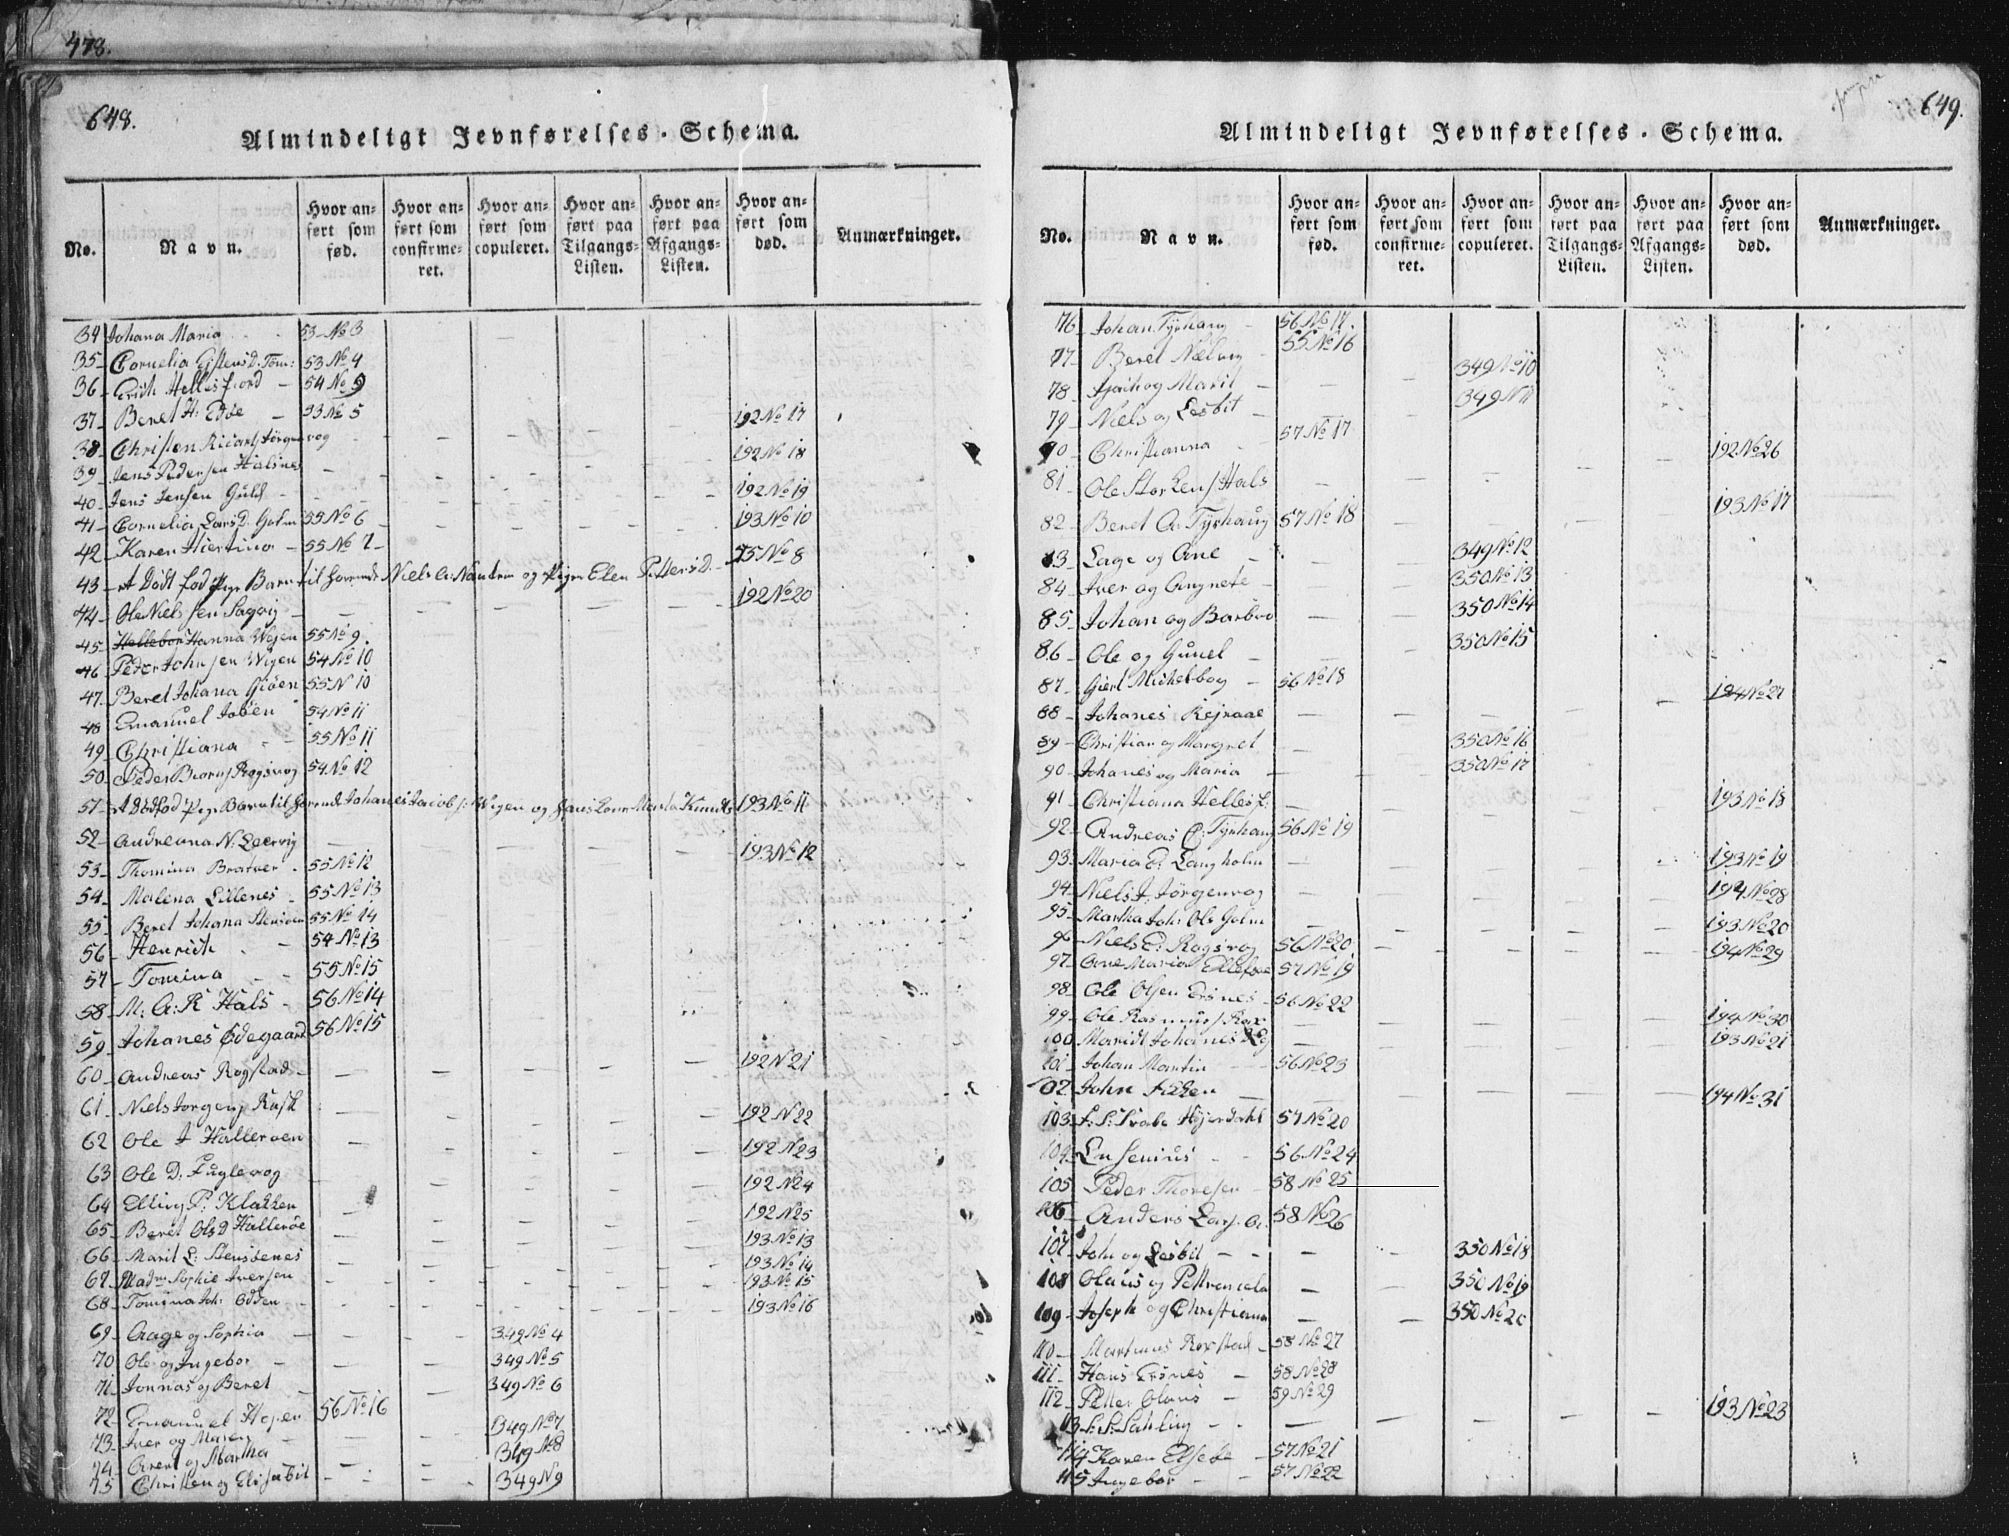 478.
648.
Almindeligt Jevnførelses-Schema.
No. Navn. Hvor anført som fød. Hvor anført som confirmeret. Hvor anført som copuleret. Hvor anført paa Tilgangs-Listen. Hvor anført paa Afgangs-Listen. Hvor anført som død. Anmærkninger.
34 Johana Maria 53 No 3
35 Cornelia 53 No 4
36 Erich Hellesfiord 54 No 9
37 Beret H: Edøe 53 No 5 192 No 17
38 Christen 192 No 18
39 Jens Pedersen Halsnes
40 Jens Jensen Guld 192 No 19
41 Cornelia Larsd. Holm 55 No 6 193 No 10
42 Karen Hiertina 55 No 7
43 Et Dødt fød Pige Barn til Niels og Pigen Elen Pettersd. 55 No 8
44 Ole Nielssen Sagvig 192 No 20
45 Hanna Wejen 55 No 9
46 Peder Johnsen Wejen 54 No 10
47 Beret Johana Giøen 55 N 10
48 Emanuel 54 No 11
49 Christiana 55 No 11
50 Peder Røgsvog 54 No 12
51 Et Dødfød Pige Barn til Johanes Jacobs: Wigen og hans Kone Marta Knuds 193 No 11
52 Andreana N. Leervig 193 No 12
53 Thomina Bratvær 55 No 12
54 Malena Lillenes 55 No 13
55 Beret Johana Stensøen 55 No 14
56 Henrich 54 No 13
57 Tomina 55 No 15
58 M. A. R Hals 56 No 14
59 Johanes Ødegaard 56 No 15
60 Andreas Rogstad 192 N 21
61 Niels Jørgens Kusk 192 N 22
62 Ole J Halleroen 192 N 23
63 Ole D. Fuglevog 192 N 24
64 Elling P. Klakken 192 N 25
65 Beret Olsd Hallerøe 193 No 13
66 Marit L: Stensøenes 193 No 14
67 Madm Sophie Iversen 193 No 15
68 Tomina Joh: Odden 193 No 16
69 Aage og Sophia 349 No 4
70 Ole og Ingebor 349 No 5
71 Jonnas og Beret 349 No 6
72 Emanuel 56 No 16
73 Iver og Maren 349 No 7
74 og Martha 349 No 8
75 Christen og Elisabit 349 N 9
649.
Almindeligt Jevnførelses-Schema.
No. Navn. Hvor anført som fød. Hvor anført som confirmeret. Hvor anført som copuleret. Hvor anført paa Tilgangs-Listen. Hvor anført paa Afgangs-Listen. Hvor anført som død. Anmærkninger.
76 Johan Tyrhaug 56 No 17
77 Beret 55 No 16
78 og Marit 349 No 10
79 Niels og Lesbit 349 N 11
80 Christianna 57 No 17
81 Ole Hals 192 No 26
82 Beret A: Tyrhaug 57 No 18 193 No 17
83 Lage og Ane 349 No 12
84 Iver og Angnete 350 No 13
85 Johan og Barbro 350 No 14
86 Ole og Gunel 350 No 15
87 Giert Michelbog 56 No 18
88 Johanes 194 No 27
89 Christian og Margret 350 No 16
90 Johanes og Maria 350 No 17
91 Christiana Hellesf. 193 No 18
92 Andreas C: Tyrhaug 56 No 19
93 Maria E: Langholm 193 No 19
94 Niels J. Jørgenvog 194 No 28
95 Martha Joh: Ols Holm 193 No 20
96 Niels E: Røgsvog 56 No 20 194 No 29
97 Ane Maria 57 No 19
98 Ole Olsen Ersnes 56 No 22
99 Ole Rasmuss 194 No 30
100 Maridt Johanes 193 No 21
101 Johan Martin 56 No 23
102 John 194 No 31
103 Hejerdahl 57 No 20
104 Ensenius 56 No 24
105 Peder Thoresen 58 No 25
106 Anders Lars. A. 58 No 26
107 Joh og Lesbit 350 No 18
108 Olaus og Pettronela 350 No 19
109 Joseph og Christiana 350 No 20
110 Martinus Rokstad 58 No 27
111 Hans Ersnes 58 No 28
112 Petter Olaus 59 No 29
113 193 No 23
114 Karen Elsebe 57 No 21
115 Ingebor 57 No 22